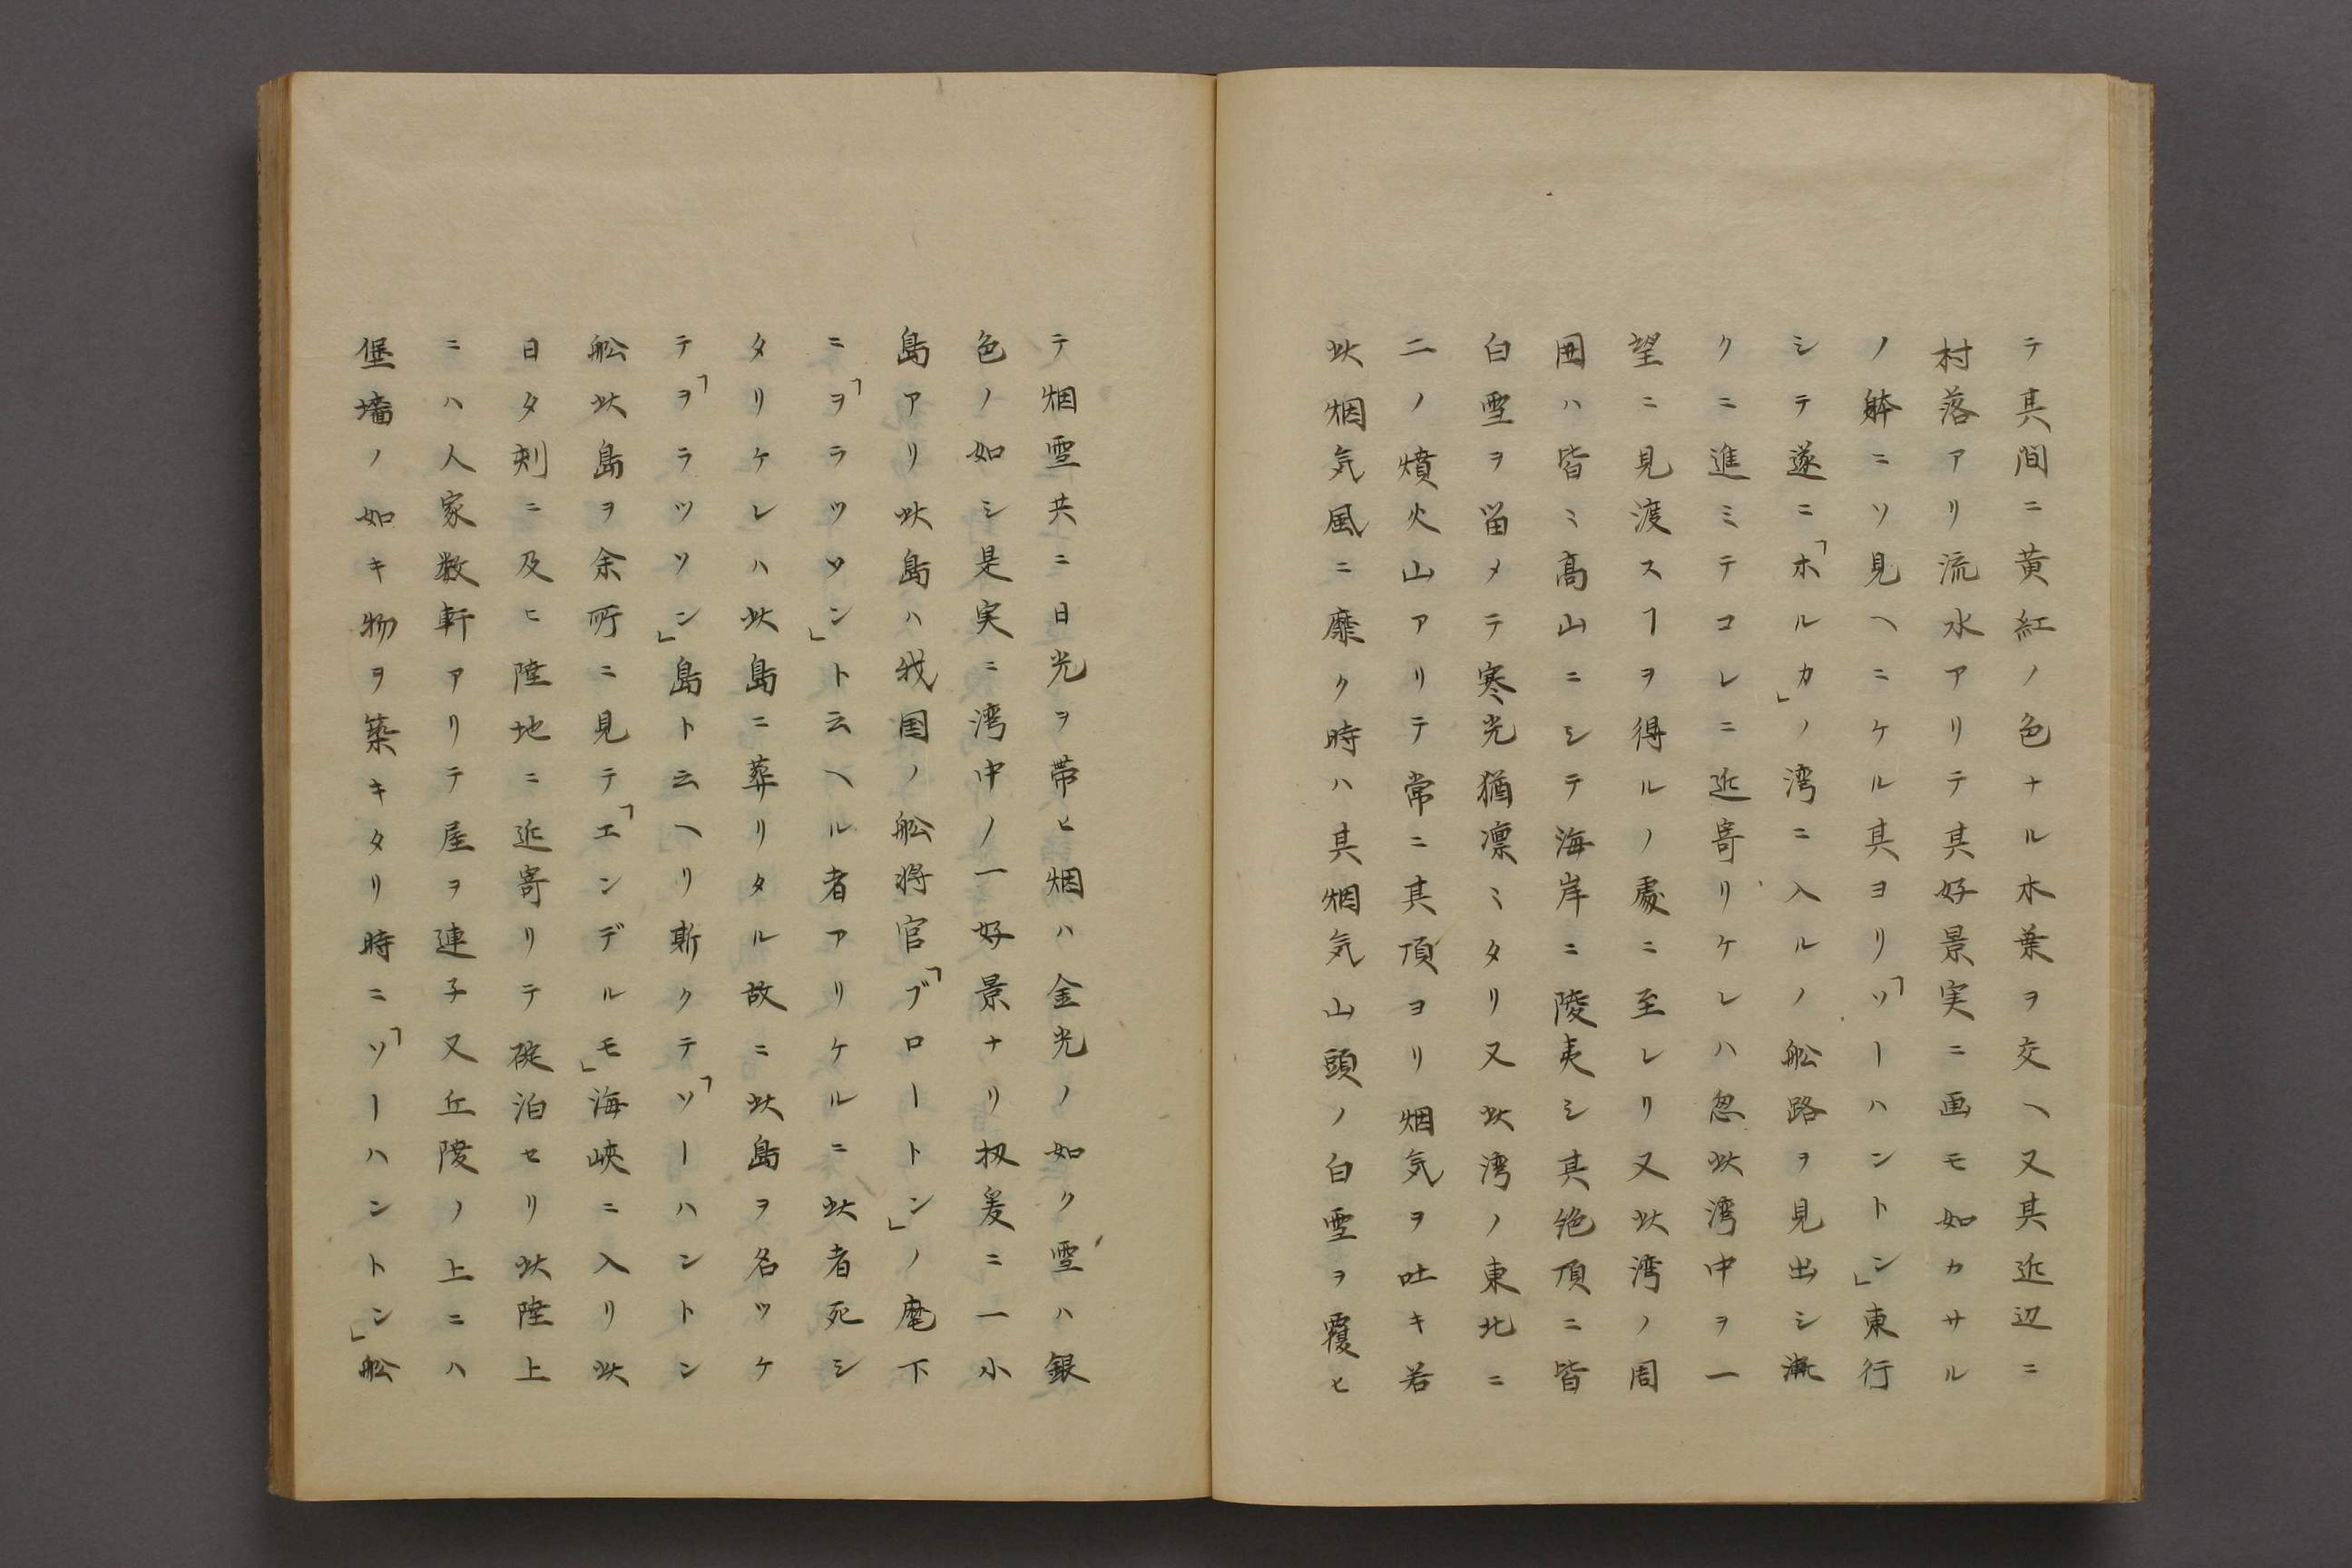 テ其間ニ黄紅ノ色ナル木葉ヲ交ヘ又其近辺ニ
村落アリ流水アリテ其好景実ニ画モ如カサル
ノ躰ニソ見ヘニケル其ヨリ「ソーハントン」東行
シテ遂ニ「ホルカ」ノ湾ニ入ルノ舩路ヲ見出シ漸
クニ進ミテコレニ近寄リケレハ忽此湾中ヲ一
望ニ見渡スヿヲ得ルノ處ニ至レリ又此湾ノ周
囲ハ皆ミ高山ニシテ海岸ニ陵夷シ其絶頂ニ皆
白雪ヲ留メテ寒光猶凛ミタリ又此湾ノ東北ニ
二ノ憤火山アリテ常ニ其頂ヨリ烟気ヲ吐キ若
此烟気風ニ靡ク時ハ其烟気山頭ノ白雪ヲ覆ヒ
テ烟雪共ニ日光ヲ帯ヒ烟ハ金光ノ如ク雪ハ銀
色ノ如シ是実ニ湾中ノ一好景ナリ扨爰ニ一小
島アリ此島ハ我国ノ舩将官「ブロートン」ノ麾下
ニ「ヲラツソン」ト云ヘル者アリケルニ此者死シ
タリケレハ此島ニ葬リタル故ニ此島ヲ名ツケ
テ「ヲラツソン」島ト云ヘリ斯クテ「ソーハントン
舩此島ヲ余所ニ見テ「エンデルモ」海峡ニ入リ此
日夕刻ニ及ヒ陸地ニ近寄リテ碇泊セリ此陸上
ニハ人家数軒アリテ屋ヲ連子又丘陵ノ上ニハ
堡墻ノ如キ物ヲ築キタリ時ニ「ソーハントン」舩